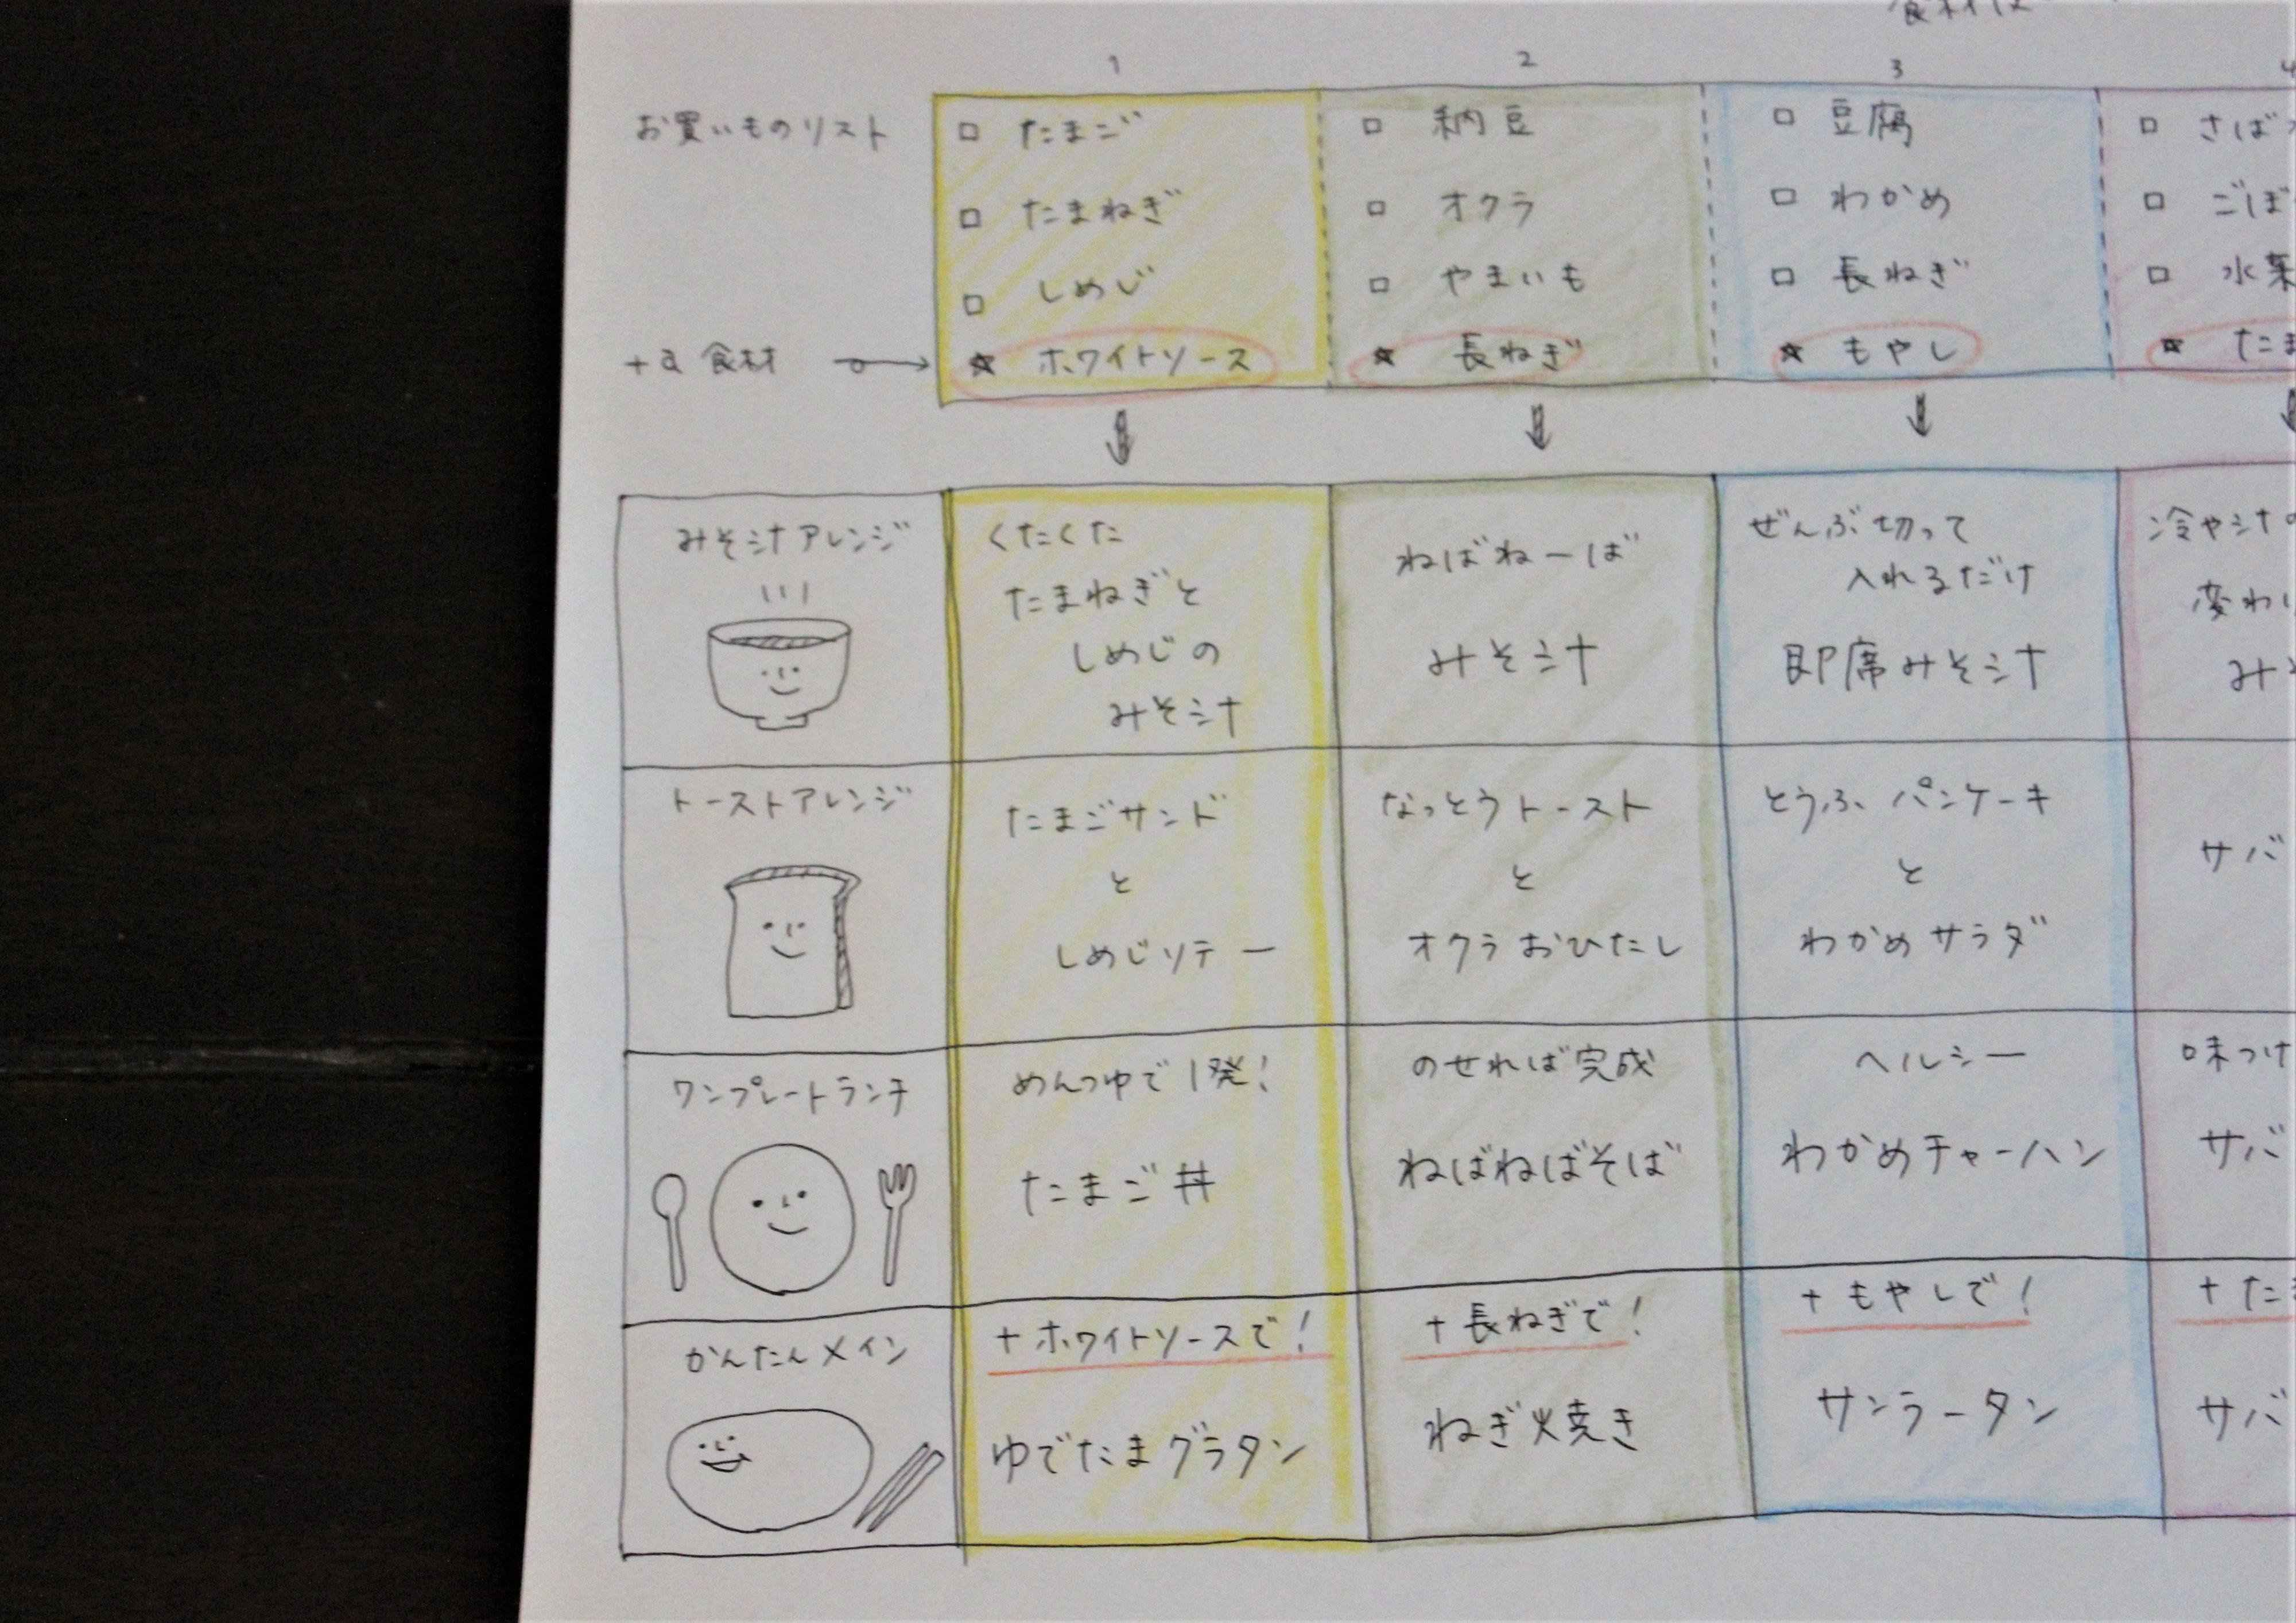 食材は
1
2
3
4
お買いものリスト
□ たまご
□ たまねぎ
□ しめじ
+α 食材
★ ホワイトソース
□ 納豆
□ オクラ
□ やまいも
★ 長ねぎ
□ 豆腐
□ わかめ
□ 長ねぎ
★ もやし
□ さば
□ ごぼ
□ 水菜
★ たま
みそ汁アレンジ
くたくた
たまねぎと
しめじの
みそ汁
ねばねーば
みそ汁
ぜんぶ切って
入れるだけ
即席みそ汁
冷や汁の
変わり
みそ
トーストアレンジ
たまごサンド
と
しめじソテー
なっとうトースト
と
オクラおひたし
とうふパンケーキ
と
わかめサラダ
サバ
ワンプレートランチ
めんつゆで1発!
たまご丼
のせれば完成
ねばねばそば
ヘルシー
わかめチャーハン
味つけ
サバ
かんたんメイン
+ホワイトソースで!
ゆでたまグラタン
+長ねぎで!
ねぎ焼き
+もやしで!
サンラータン
+たま
サバ